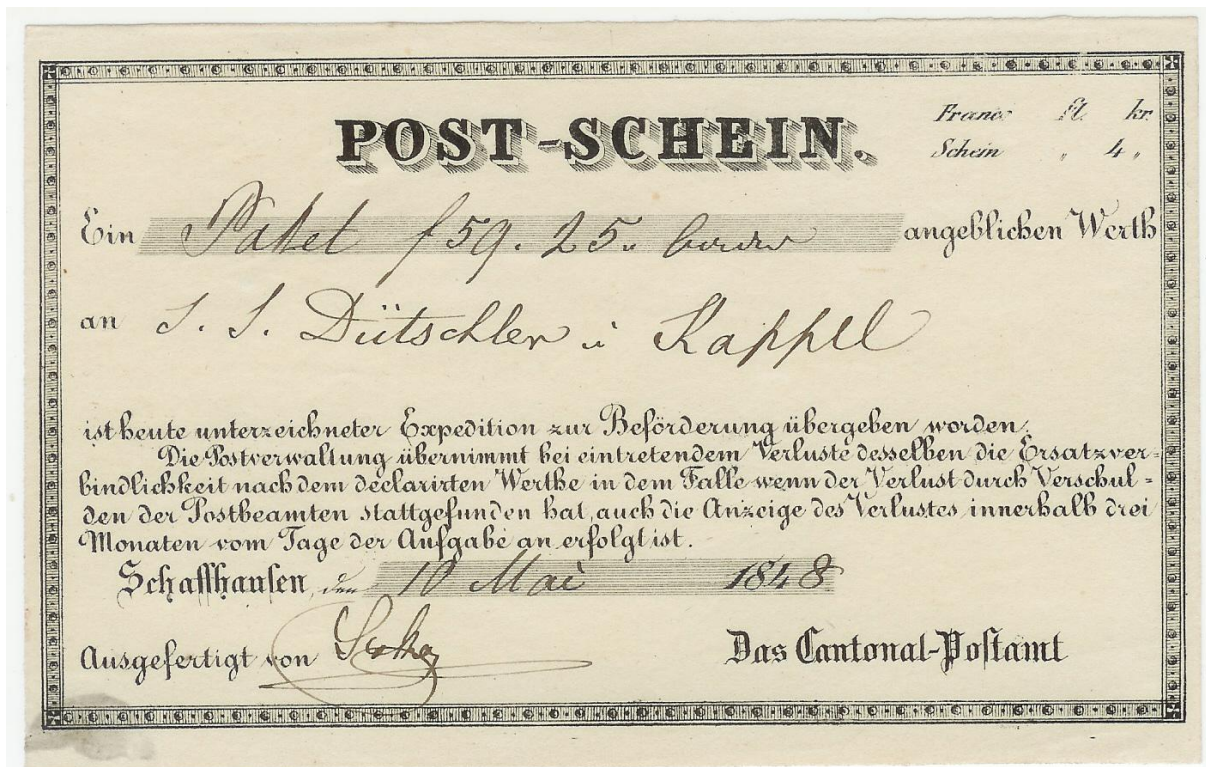 POST-SCHEIN.
Franco fl. kr.
Schein " 4 "
Ein Paket f 59. 25.. angeblichen Werth
an J. J. Dütschler i Kappel
ist heute unterzeichneter Expedition zur Beförderung übergeben worden.
Die Postverwaltung übernimmt bei eintretendem Verluste desselben die Ersatzver-
bindlichkeit nach dem declarirten Werthe in dem Falle wenn der Verlust durch Verschul-
den der Postbeamten stattgefunden hat, auch die Anzeige des Verlustes innerhalb drei
Monaten vom Tage der Aufgabe an erfolgt ist.
Schaffhausen, den 10 Mai 1848
Ausgefertigt von
Das Cantonal-Postamt